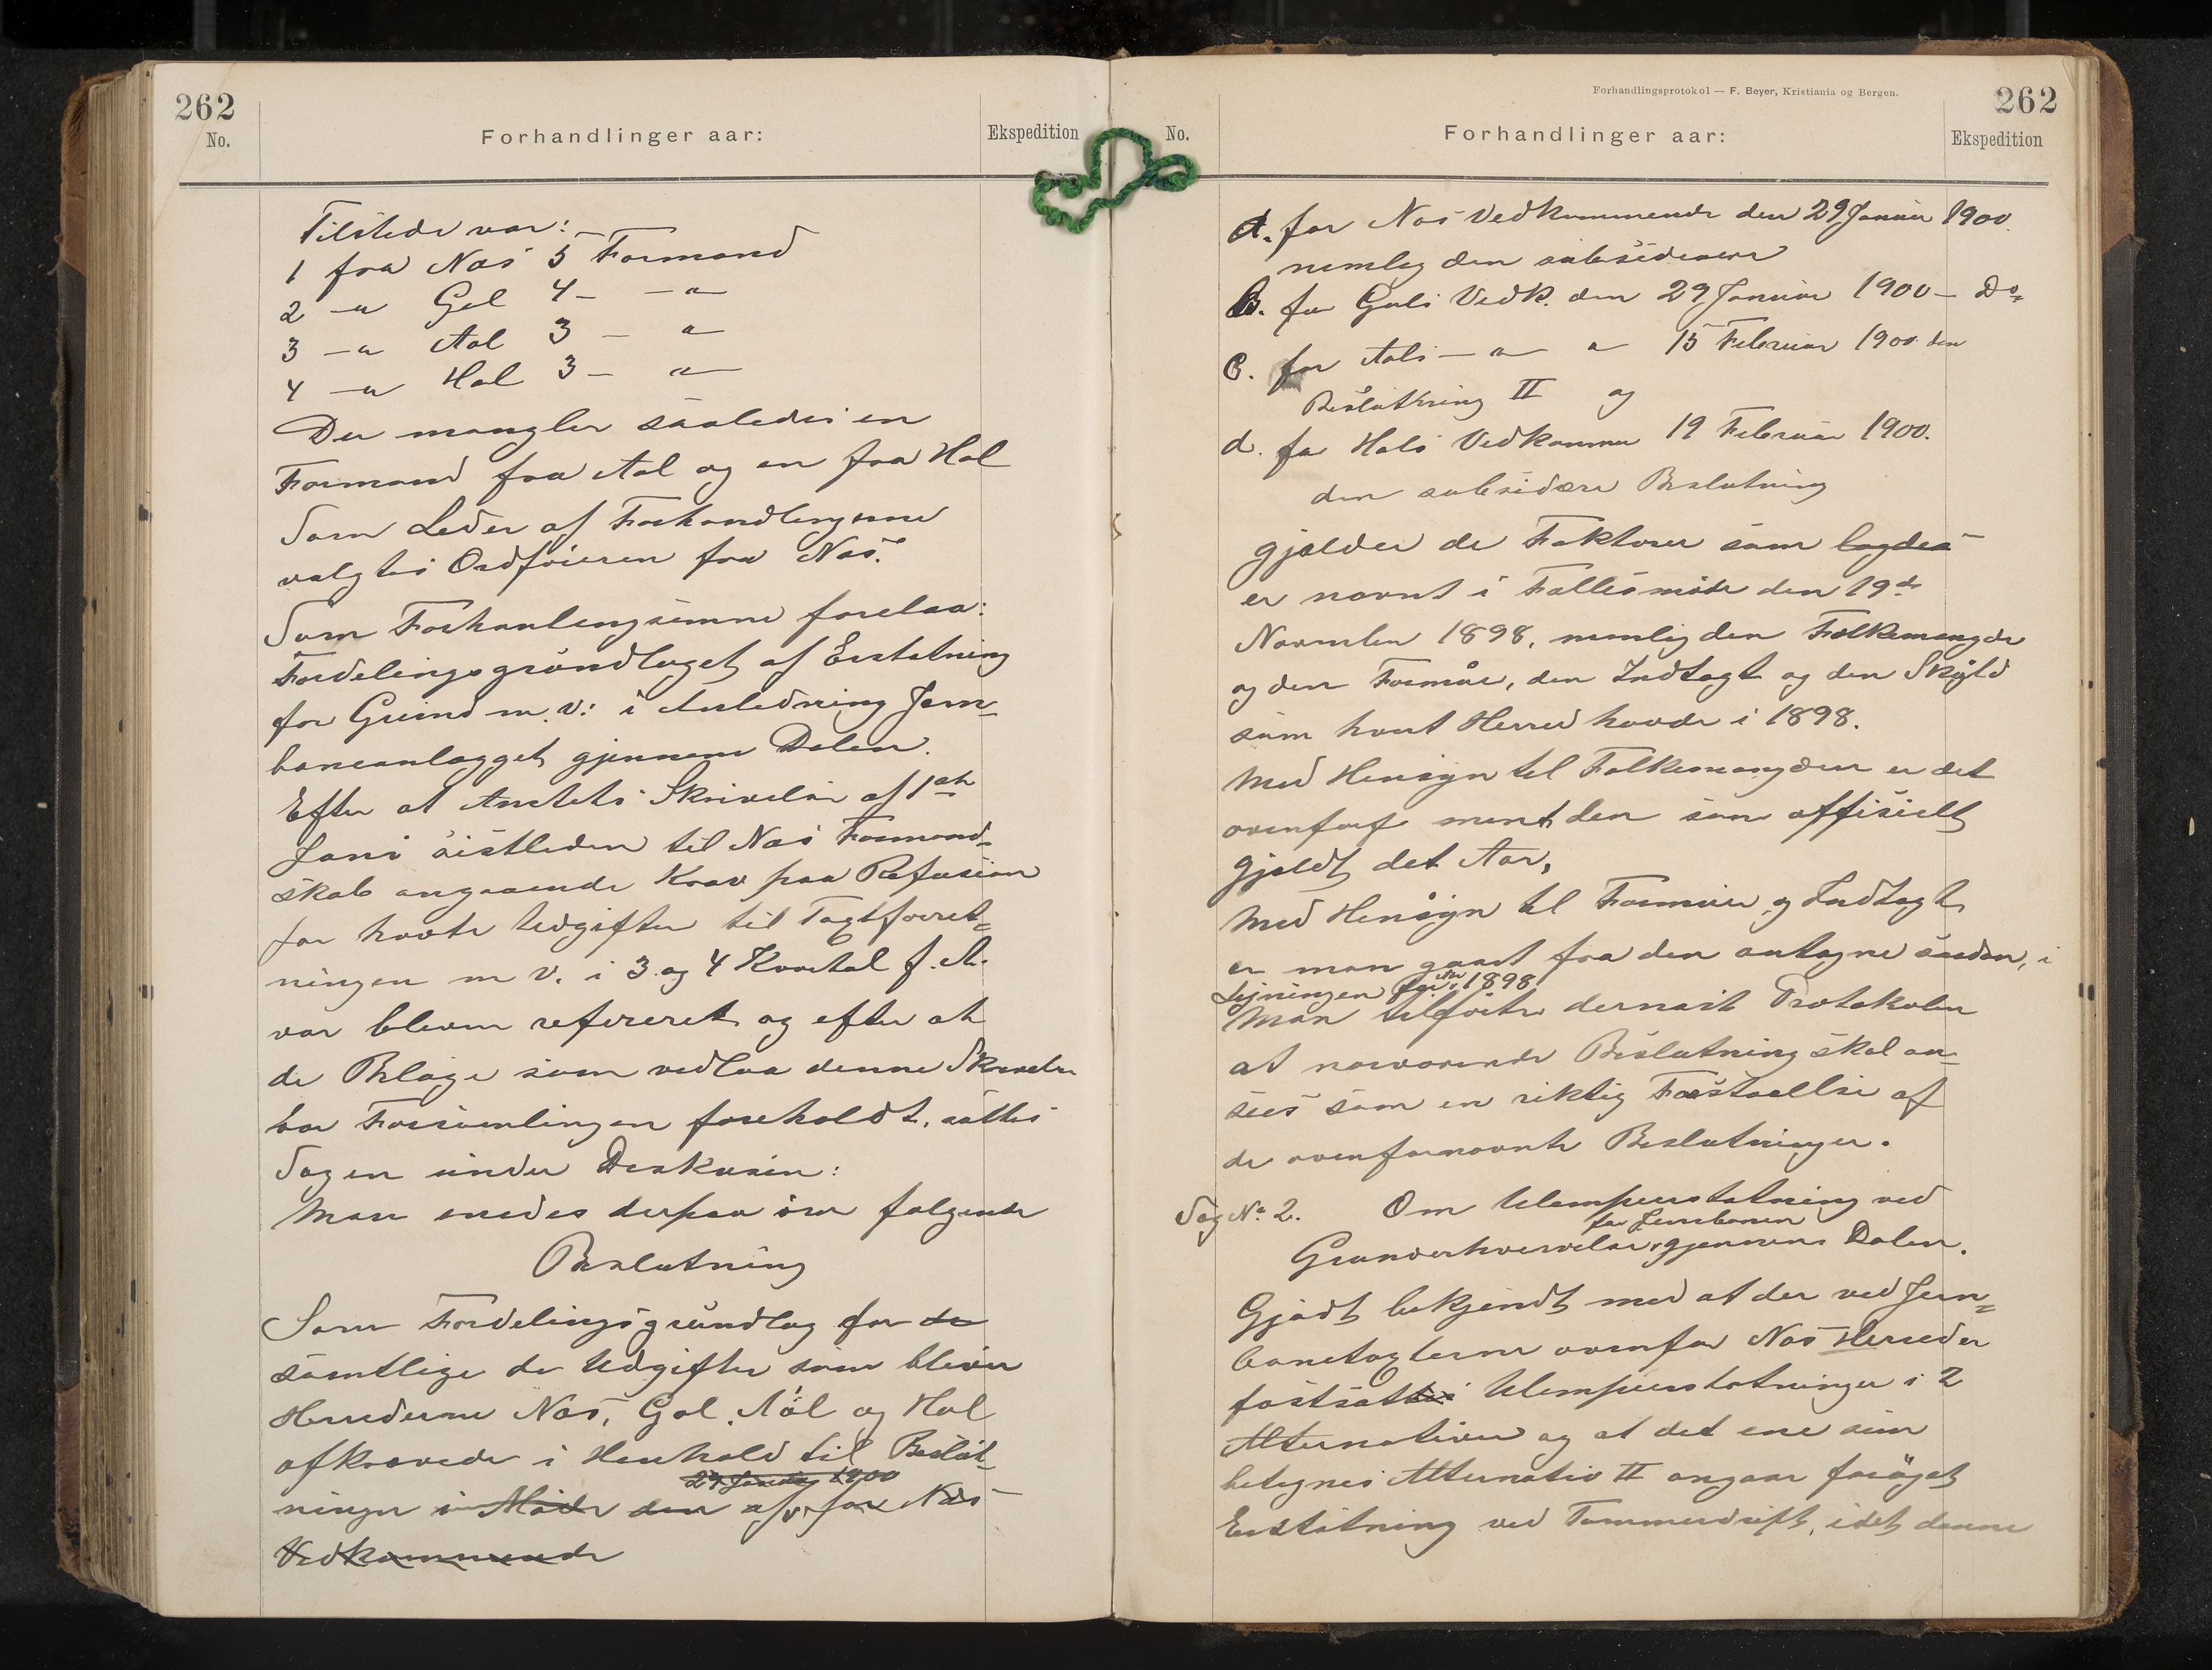 262
No.
Forhandlinger aar:
Ekspedition
Tilstede var:
1 fra Nas 5 Formænd
2 -"- Gol 4 - -"-
3 -"- Aal 3 - "-
4 -"- Hol 3 - "-
Der mangler saaledes en
Formand fra Aal og en fra Hol
Som Leder af Forhandlingerne
valgtes Ordføreren fra Nas.
Som Forhanlingsemne forelaa:
Fordelingsgrundlaget af Erstatning
for Grund m. v: i Anledning Jern=
baneanlægget gjennem Dalen.
Efter at Amtets Skrivelse af 1ste
Juni sistleden til Nas Formand=
skab angaaende Krav paa Refusion
for havte Udgifter til Tagtforret=
ningen m v. i 3 og 4 Kvartal f. A.
var bleven refereret og efter at
de Bilage som vedlaa denne Skrivelse
var Forsamlingen foreholdt, sattes
Sagen under Diskusion:
Man enedes derpaa om følgende
Beslutning
Som Fordelingsgrundlag for de
samtlige de Udgifter som bliver
Herrederne Nas, Gol, Aal og Hol
afkrævede i Henhold til Beslut=
29 Januar 1900
ninger i Møde den af for Nas
Vedkommende
Forhandlingsprotokol — F. Beyer, Kristiania og Bergen.
262
No.
Forhandlinger aar:
Ekspedition
A. for Nas Vedkommende den 29 Januar 1900.
nemlig den subsidiære
B. for Gols Vedk. den 29 Januar 1900 - Do=
C. for Aals - " - " 15 Februar 1900 den
Beslutning II og
d. for Hols Vedkomm 19 Februar 1900.
den subsidære Beslutning
gjælder de Faktorer som lagdes
er nævnt i Fællesmøde den 19de
November 1898, nemlig den Folkemængde
og den Formue, den Indtægt og den Skyld
som hvert Herred havde i 1898.
Med Hensyn til Folkemængden er det
ovenfor ment den som offisielt
gjaldt det Aar,
Med Hensyn til Formue og Indtægt
er man gaaet fra den antagne saadan, i
Ligningen for Aar 1898
Man tilføite dernæst Protokolen
at nærværende Beslutning skal an=
sees som en riktig Forstaaelse af
de ovenfornævnte Beslutninger.
Sag No. 2. Om Ulempeerstatning ved
for Jernbanen
Grunderhvervelse gjennem Dalen.
Gjødt bekjendt med at der ved Jern=
banetagterne ovenfor Nas Herred er
fastsattes Ulempeerstatninger i 2
Alternativer og at det ene som
betegnes Alternativ II angaar forøget
Erstatning ved Tømmerdrift, idet denne